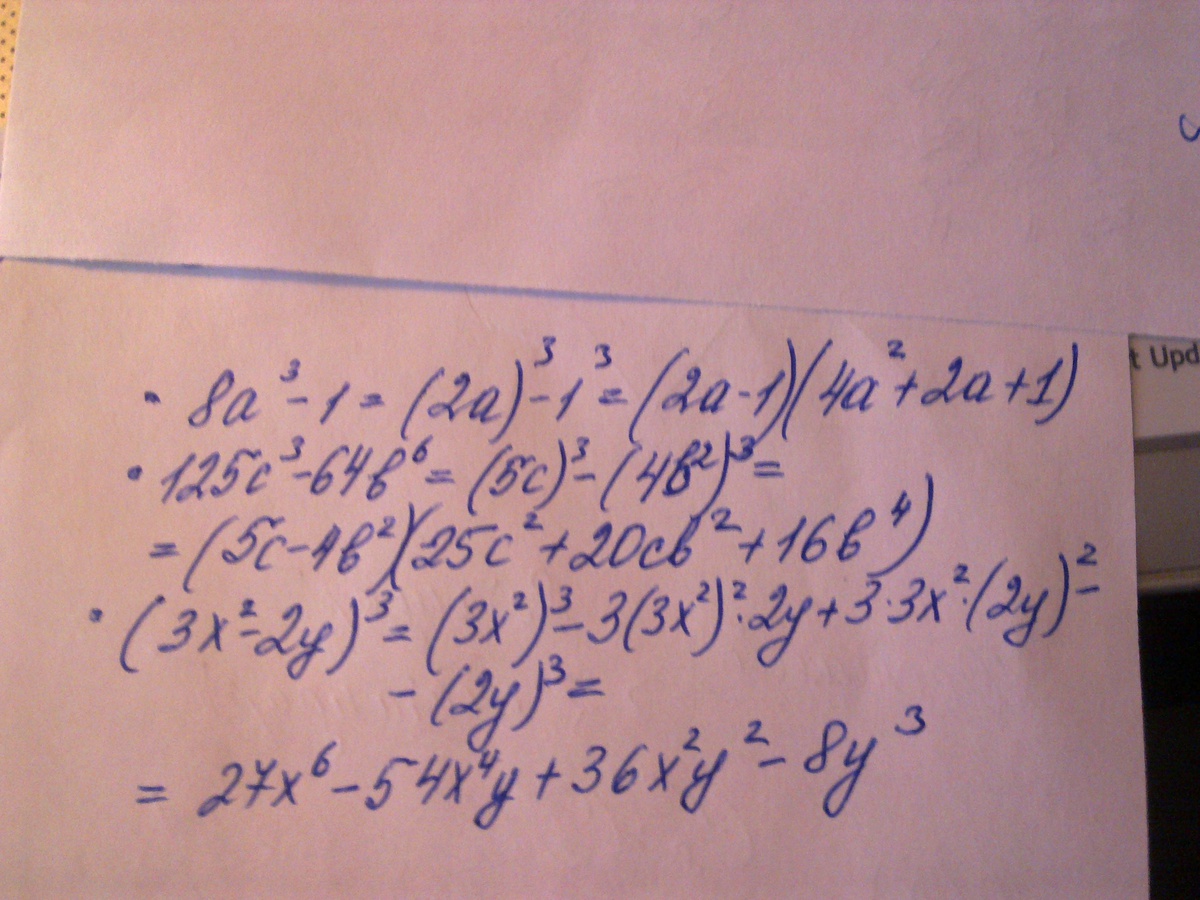 t Upd
• 8a³ - 1 = (2a)³ - 1³ = (2a - 1)(4a² + 2a + 1)
• 125c³ - 64в⁶ = (5c)³ - (4в²)³ =
= (5c - 4в²)(25c² + 20cв² + 16в⁴)
• (3x² - 2y)³ = (3x²)³ - 3(3x²)² · 2y + 3 · 3x² · (2y)² -
- (2y)³ =
= 27x⁶ - 54x⁴y + 36x²y² - 8y³